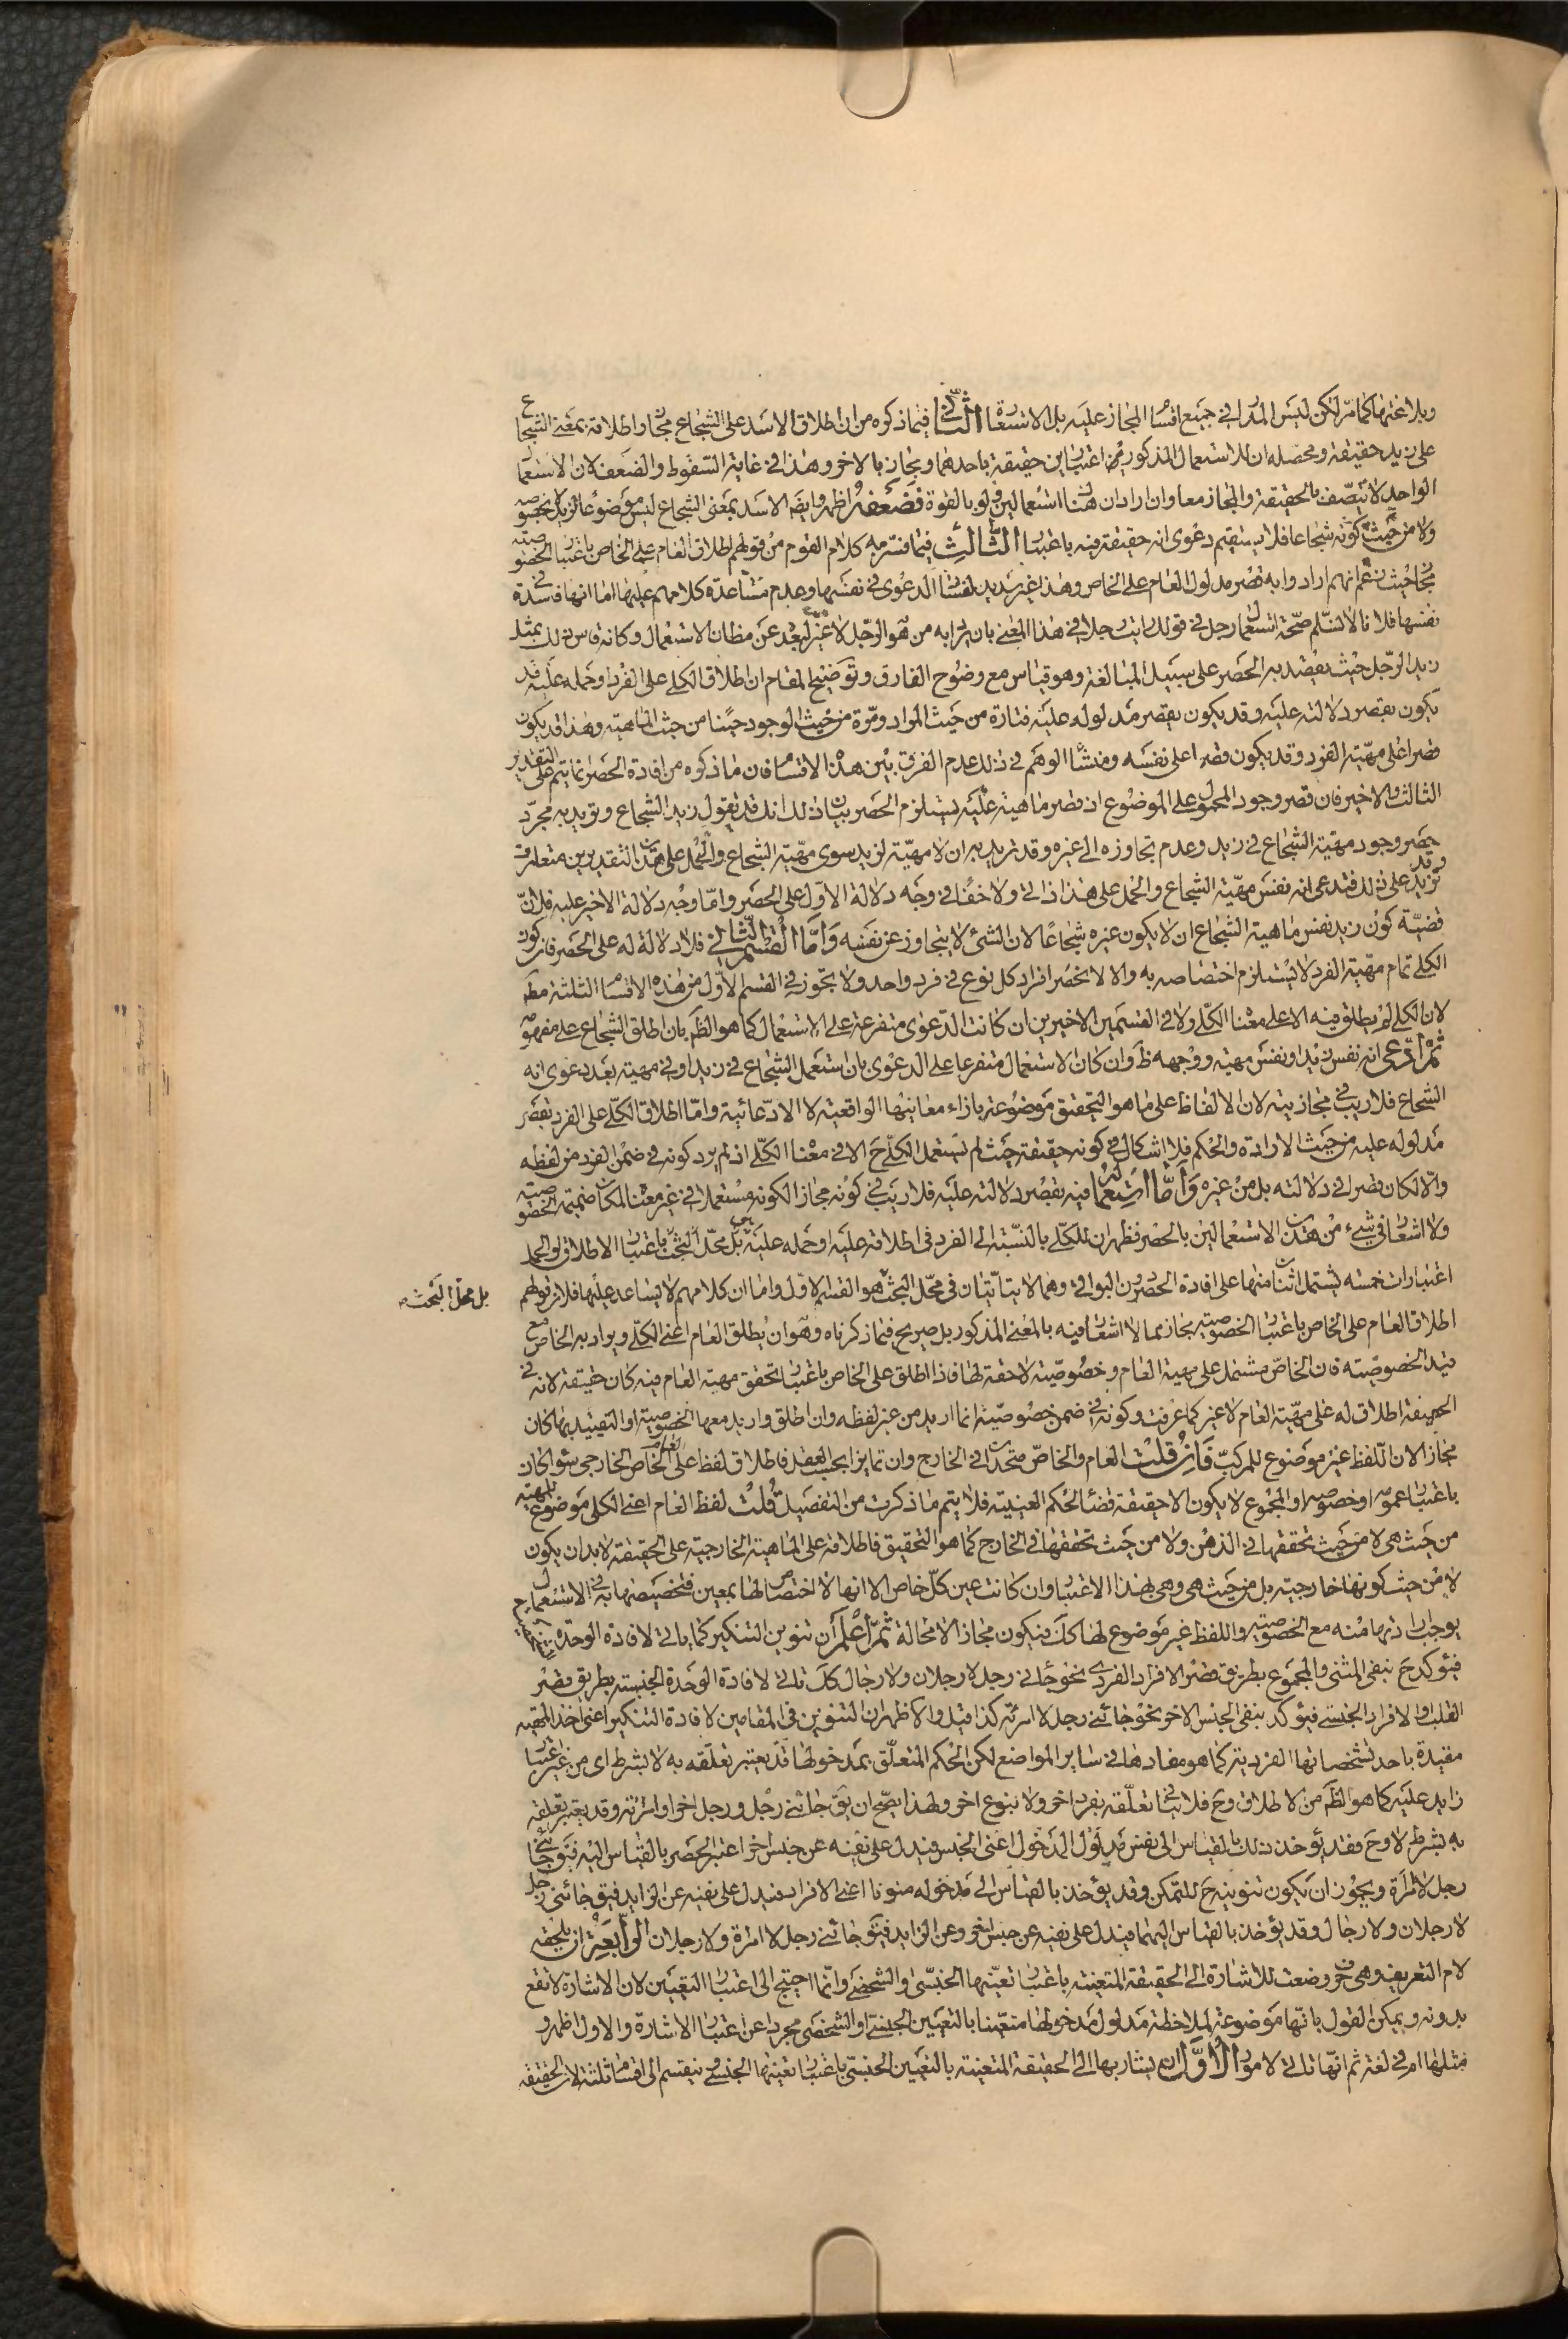 وبلاغتها كما مرّ لكن ليس المدار في جميع اقسام المجاز عليه بل الاستعارة الثاني فيما ذكروه من ان اطلاق الاسد على الشجاع مجاز واطلاقه بمعنى الشجاع
على زيد حقيقة ومحصّله ان للاستعمال المذكور اعتبارين حقيقة باحدهما ومجاز بالاخر وهذا في غاية السّقوط والضعف لان الاستعمال
الواحد لا يتّصف بالحقيقة والمجاز معا وان اراد ان هنا استعمالين ولو بالقوة فضعفه اظهر وايضا الاسد بمعنى الشجاع ليس موضوعا لزيد بخصوصه
ولا من حيث كونه شجاعا فلا يستقيم دعوى انه حقيقة فيه باعتبار الثالث فيما فسّر به كلام القوم من قولهم اطلاق العام على الخاص باعتبار الخصوصيّة
مجاز حيث زعم انهم ارادوا به قصر مدلول العام على الخاص وهذا غير سديد لفساد الدعوى في نفسها وعدم مساعدة كلامهم عليها امّا انها فاسدة في
نفسها فلانا لا نسّلم صحّة استعمال رجل في قولك رايت رجلا في هذا المعنى بان يراد به من هو الرّجل لا غير لبعده عن مظان الاستعمال وكانه قاس ذلك بمثل
زيد الرّجل حيث يقصد به الحصر على سبيل المبالغة وهو قياس مع وضوح الفارق وتوضيح المقام ان اطلاق الكلي على الفرد او حمله عليه قد
يكون بقصر دلالته عليه وقد يكون بقصر مدلوله عليه فتارة من حيث المواد ومرّة من حيث الوجود حينا من حيث الماهية وهذا قد يكون
قصرا على مهيّة الفرد وقد يكون قصرا على نفسه ومنشأ الوهم في ذلك عدم الفرق بين هذه الاقسام فان ما ذكروه من افادة الحصر انما يتم على التقدير
الثالث والاخير فان قصر وجود المحمول على الموضوع او قصر ماهيته عليه يستلزم الحصر بيان ذلك انك قد تقول زيد الشجاع وتريد به مجرّد
حصر وجود مهيّة الشجاع في زيد وعدم تجاوزه الى غيره وقد تريد به ان لا مهيّة لزيد سوى مهيّة الشجاع والحمل على هذين التقديرين متعارف
وقد تزيد على ذلك فتدعى انه نفس مهيّة الشجاع والحمل على هذا ذاتي ولا خفاء في وجه دلالة الاوّل على الحصر وامّا وجه دلالة الاخير عليه فلانّ
قضيّة كون زيد نفس ماهية الشجاع ان لا يكون غيره شجاعًا لان الشئ لا يتجاوز عن نفسه وامّا القسم الثاني فلا دلالة له على الحصر فان كون
الكلي تمام مهيّة الفرد لا يستلزم اختصاصه به والا لانحصر افراد كل نوع في فرد واحد ولا تجوز في القسم الاوّل من هذه الاقسام الثلثة مطلقا
لان الكلي لم يطلق فيه الا على معناه الكلّي ولا في القسمين الاخيرين ان كانت الدّعوى متفرعة على الاستعمال كما هو الظّاهر بان اطلق الشجاع على مفهومه
ثم ادّعى انه نفس زيد او نفس مهيته ووجهه ظ وان كان الاستعمال متفرعا على الدعوى بان استعمل الشجاع في زيد او في مهيته بعد دعوى انه
الشجاع فلا ريب في مجازيته لان الالفاظ على ما هو التحقيق موضوعة بازاء معانيها الواقعية لا الادّعائية وامّا اطلاق الكلّي على الفرد بقصر
مدلوله عليه من حيث الارادة والحكم فلا اشكال في كونه حقيقة حيث لم يستعمل الكلّي ح الا في معناه الكلّي اذ لم يرد كونه في ضمن الفرد من لفظه
والّا لكان قصرا في دلالته بل من غيره وامّا استعماله فيه بقصر دلالته عليه فلا ريب في كونه مجازا لكونه مستعملا في غير معناه لمكان ضميمة الخصوصيّة
ولا اشعار في شيء من هذين الاستعمالين بالحصر فظهر ان للكلّي بالنسّبة الى الفرد في اطلاقه عليه او حمله عليه بل محلّ البحث باعتبار الاطلاق او الحمل
اعتبارات خمسه يشتمل اثنان منها على افادة الحصر دون البواقي وهما لا يتاتّيان في محلّ البحث هو القسم الاوّل واما ان كلامهم لا يساعد عليها فلان قولهم
بل محلّ البحث
اطلاق العام على الخاص باعتبار الخصوصيّة مجاز مما لا اشعار فيه بالمعنى المذكور بل صريح فيما ذكرناه وهو ان يطلق العام اعنى الكلّي ويراد به الخاص مع
قيد الخصوصيّة فان الخاصّ مشتمل على مهية العام وخصوصيّة لاحقة لها فاذا اطلق على الخاص باعتبار تحقق مهيّة العام فيه كان حقيقة لانه في
الحقيقة اطلاق له على مهيّة العام لا غير كما عرفت وكونه في ضمن خصوصيّة انما اريد من غير لفظه وان اطلق واريد معها الخصوصيّة او التقييد بها كان
مجازا لان اللّفظ غير موضوع للمركبّ فان قلت العام والخاصّ متحدان في الخارج وان تمايزا بحسب العقل فاطلاق لفظ العام على الخاص الخارجى سواء كان
باعتبار عمومه او خصوصه او المجموع لا يكون الا حقيقة قضاء لحكم العينيّة فلا يتم ما ذكرت من التفصيل قلت لفظ العام اعنى الكلى موضوع للمهيّة
من حيث هى لا من حيث تحققها في الذهن ولا من حيث تحققها في الخارج كما هو التحقيق فاطلاقه على الماهية الخارجيّة على الحقيقة لا بد ان يكون
لا من حيث كونها خارجيّة بل من حيث هى وهى بهذا الاعتبار وان كانت عين كلّ خاص الا انها لا اختصاص لها بمعين فتخصيصها به في الاستعمال
يوجب ارادتها منه مع الخصوصيّة واللفظ غير موضوع لها كك فيكون مجازا لا محالة ثمّ اعلم ان تنوين التنكير كما ياتى لافادة الوحدة
فيؤكد ح بنفى المثنى والمجموع بطريق قصر الافراد الفردى نحو جاءنى رجل لا رجلان ولا رجال كك تاتى لافادة الوحدة الجنسيّة بطريق قصر
القلب او الافراد الجنسى فيؤكد بنفى الجنس الاخر نحو جائنى رجل لا امرئة كذا قيل والاظهر ان التنوين في المقامين لافادة التنكير اعنى اخذ المهيّة
مقيدة باحد تشخصاتها الفرديّة كما هو مفادها في ساير المواضع لكن الحكم المتعلّق بمدخولها قد يعتبر تعلّقه به لا بشرط اى من غير اعتبار
زايد عليه كما هو الظّاهر من الاطلاق وح فلا ينافى تعلّقه بفرد اخر ولا بنوع اخر ولهذا يصّح ان يق جائنى رجل ورجل اخر او امرئة وقد يعتبر تعلقه
به بشرط لا وح فقد يؤخذ ذلك بالقياس الى نفس مدلول المدخول اعنى الجنس فيدل على نفيه عن جنس اخر اعتبر الحصر بالقياس اليه فيق جائنى
رجل لا امراة ويجوز ان يكون تنوينه ح للتّمكن وقد يؤخذ بالقياس الى مدخوله منونا اعنى الافراد فيدل على نفيه عن الزايد فيق جائنى رجل
لا رجلان ولا رجال وقد يؤخذ بالقياس اليهما فيدل على نفيه عن جنس اخر وعن الزايد فيق جائنى رجل لا امراة ولا رجلان الرّابعة ان يلحقه
لام التعريف وهى حرف وضعت للاشارة الى الحقيقة المتعينة باعتبار تعيّنها الجنسّى او الشخصى وانّما احتيج الى اعتبار التعيّين لان الاشارة لا تقع
بدونه ويمكن القول بانّها موضوعة لملاحظة مدلول مدخولها متعيّنا بالتعيين الجنسى او الشخصى مجرد عن اعتبار الاشارة والاول اظهر و
مثلها ام في لغة ثم انّها تاتى لامور الاوّل ان يشار بها الى الحقيقة المتعينة بالتعيين الجنسّى باعتبار تعينها الجنسى وينقسم الى اقسام ثلثة لان الحقيقة